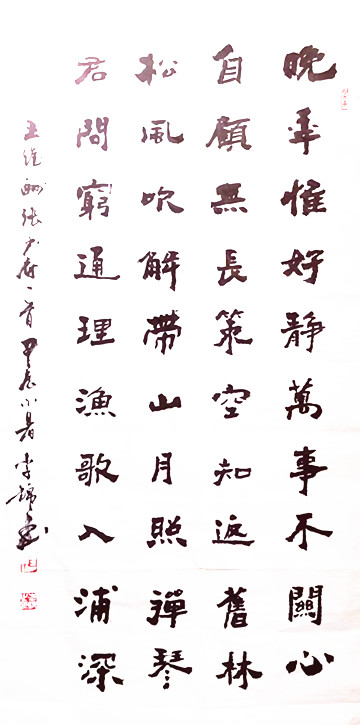 晚年惟好靜萬事不關心
自顧無長策空知返舊林
松風吹解帶山月照彈琴
君問窮通理漁歌入浦深
王維酬張少府一首甲辰小暑李錦